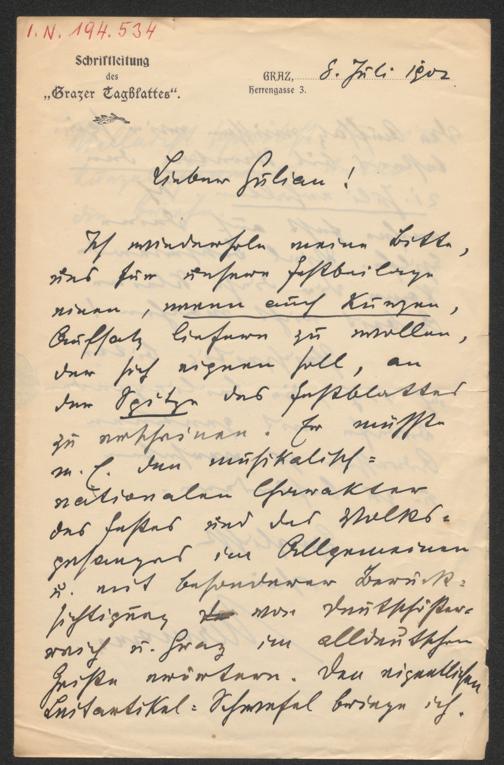 I.N. 194.534
Schriftleitung
des
„Grazer Tagblattes“.
GRAZ, 8. Juli 1902
Herrengasse 3.
Lieber Gulian!
Ich wiederhole meine Bitte,
uns für unsere Festbeilage
einen, wenn auch kurzen,
Aufsatz liefern zu wollen,
der sich eignen soll, an
der Spitze des Festblattes
zu erscheinen. Er müsste
m. E. den musikalisch=
nationalen Charakter
des Festes und des Volks=
gesanges im Allgemeinen
u. mit besonderer Berück=
sichtigung von Deutschöster=
reich u. Graz im alldeutschen
Geiste erörtern. Den eigentlichen
Leitartikel=Schwefel bringe ich.